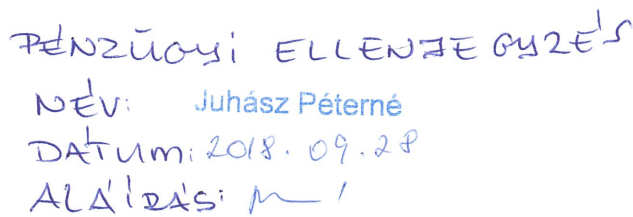 PÉNZÜGYI ELLENJEGYZÉS
NÉV: Juhász Péterné
DÁTUM: 2018.09.28
ALÁÍRÁS: